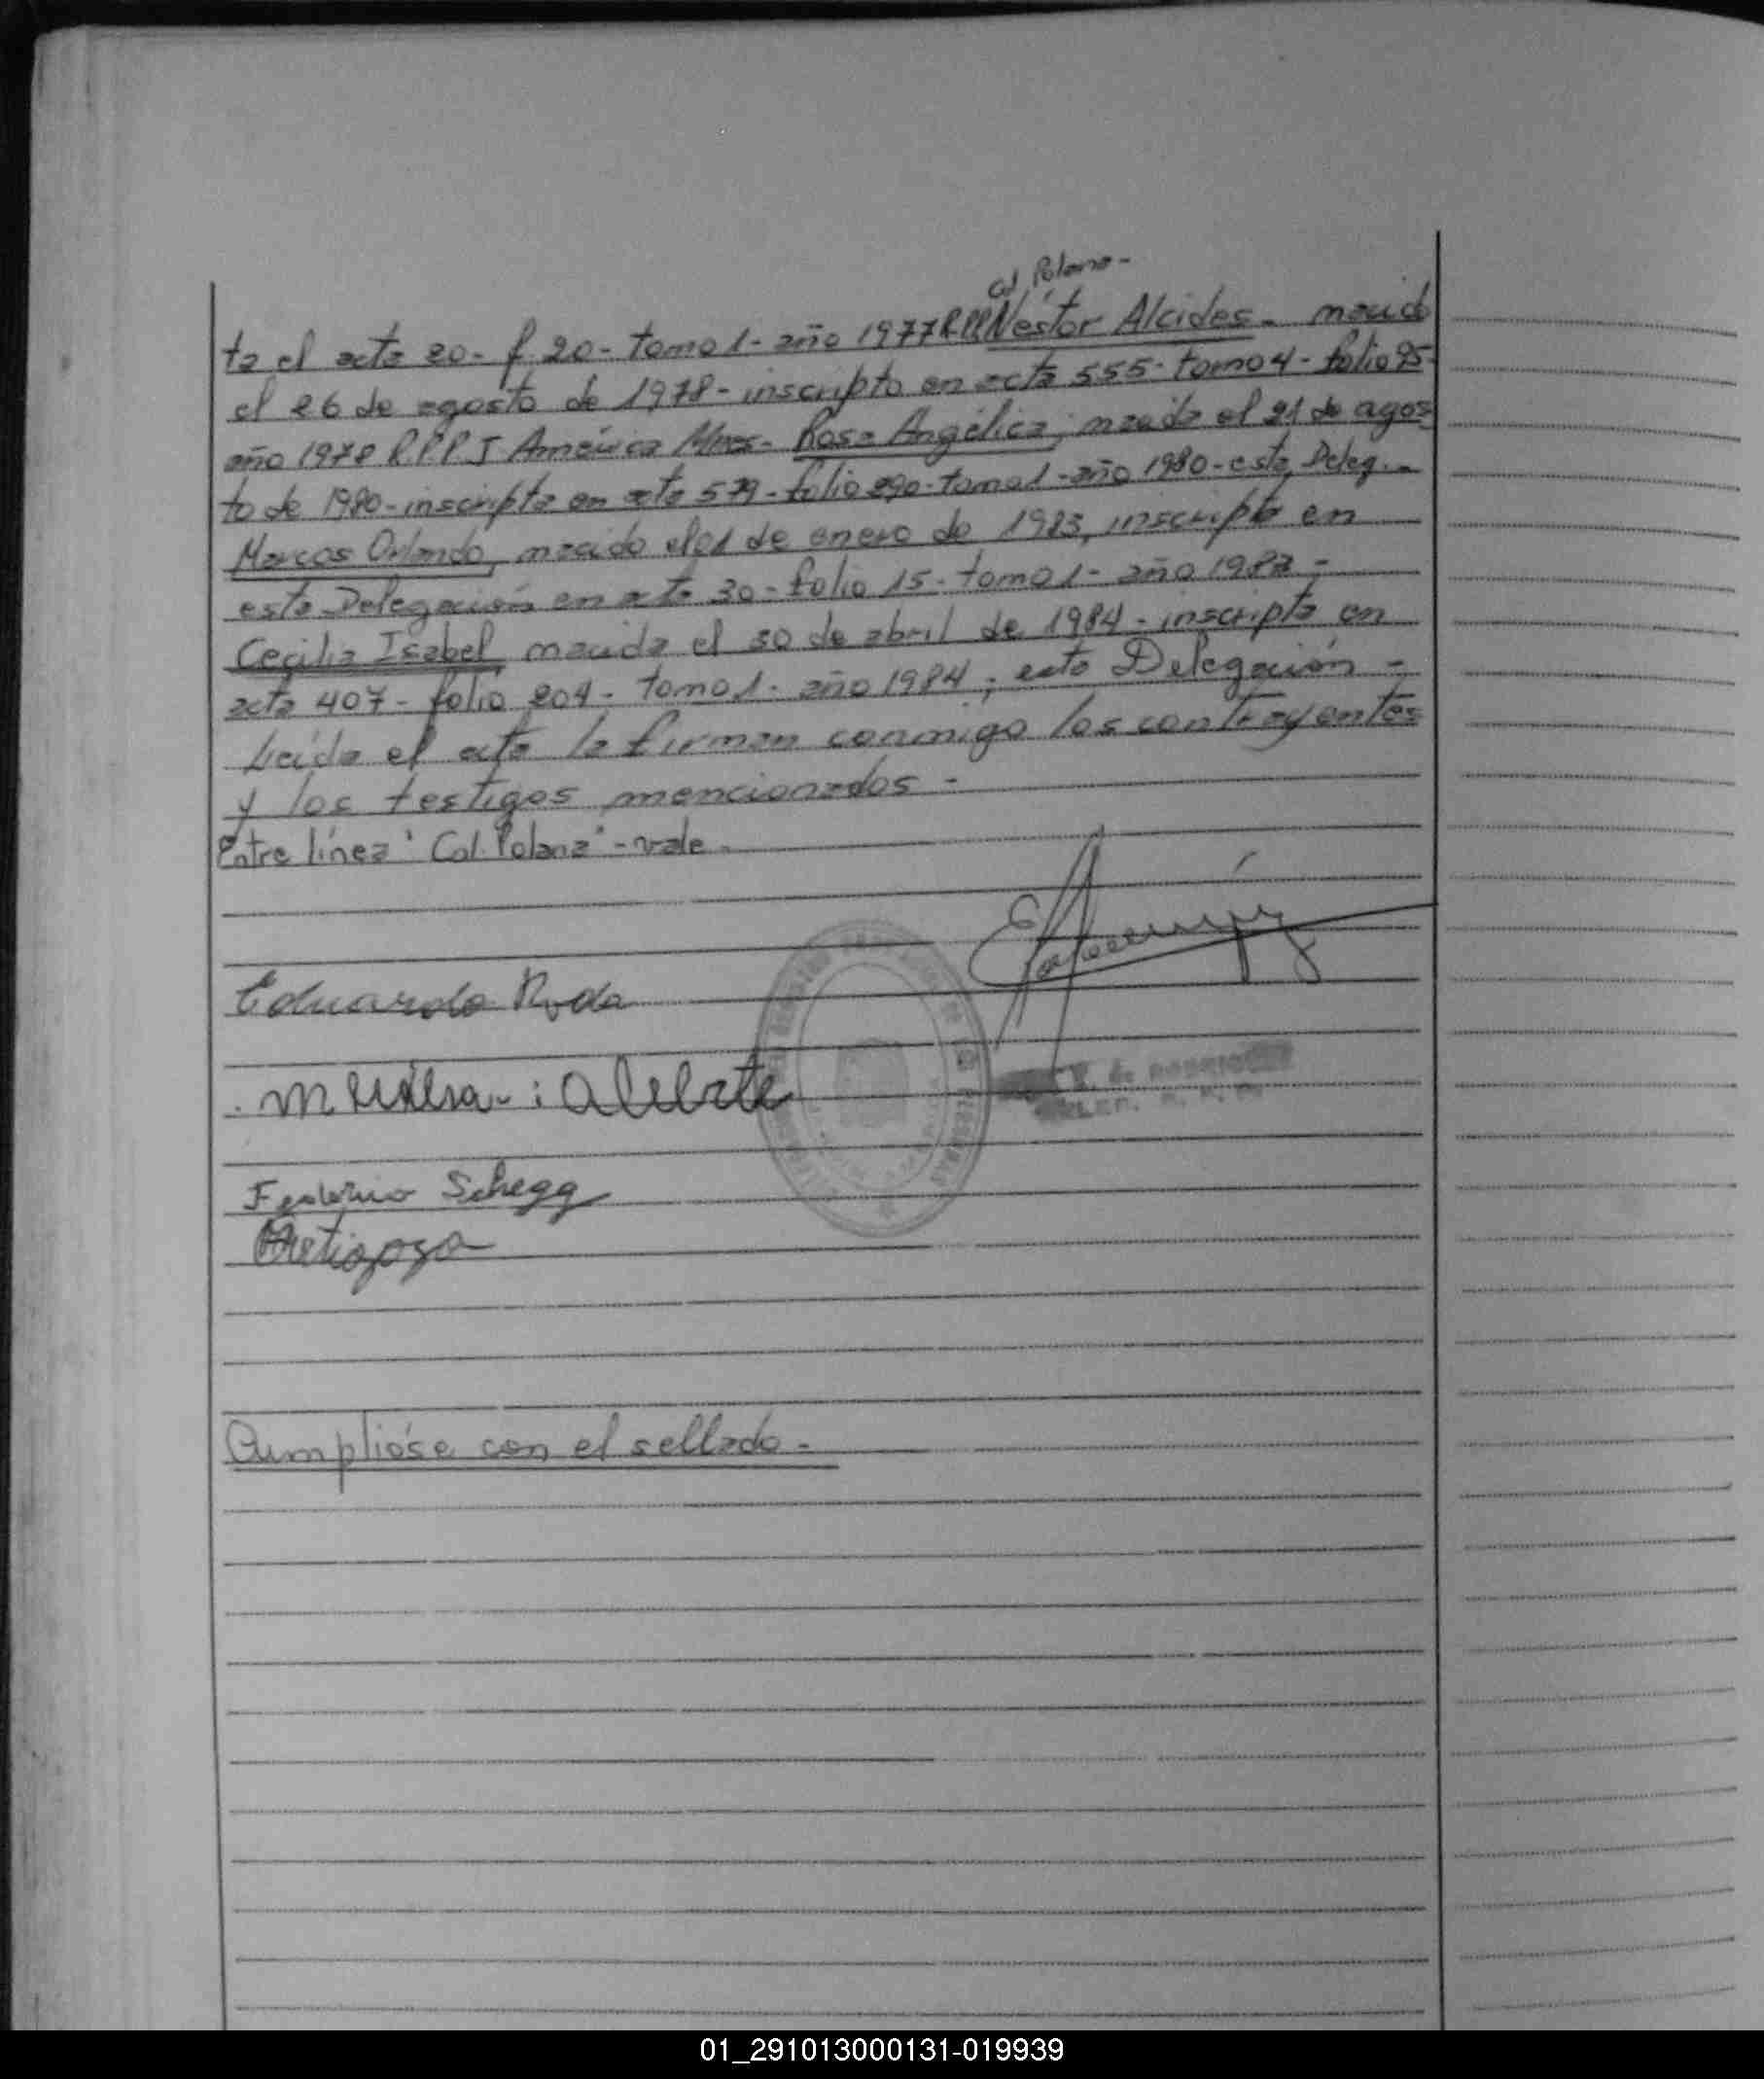 Col. Polana -
ta el acta 20 - f 20 - tomo 1 - año 1977 RPP Néstor Alcides - nacido
el 26 de agosto de 1978 - inscripto en acta 555 - tomo 4 - folio 95 -
año 1978 RPP J América Mnes - Rosa Angélica, nacida el 21 de agos
to de 1980 - inscripta en acta 579 - folio 290 - tomo 1 - año 1980 - esta Deleg. -
Marcos Orlando, nacido el 01 de enero de 1983, inscripto en
esta Delegación en acta 30 - folio 15 - tomo 1 - año 1983 -
Cecilia Isabel nacida el 30 de abril de 1984 - inscripta en
acta 407 - folio 204 - tomo 1 - año 1984, esta Delegación -
Leída el acta la firman conmigo los contrayentes
y los testigos mencionados -
Entre línea "Col. Polana" - vale -
Eduardo Roda
Federico Schegg
Cumplióse con el sellado -
01_291013000131-019939